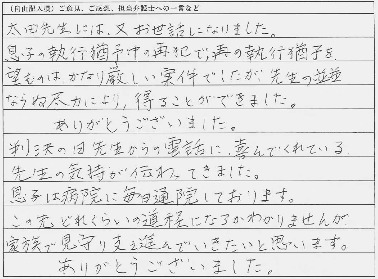 (自由記入欄) ご意見、ご感想、担当弁護士への一言など
太田先生には、又お世話になりました。
息子の執行猶予中の再犯で、再の執行猶予を
望むのはかなり厳しい案件でしたが、先生の並並
ならぬ尽力により、得ることができました。
ありがとうございました。
判決の日先生からの電話に、喜んでくれている
先生の気持が伝わってきました。
息子は病院に毎日通院しております。
この先どれくらいの道程になるかわかりませんが
家族で見守り支え進んでいきたいと思います。
ありがとうございました。